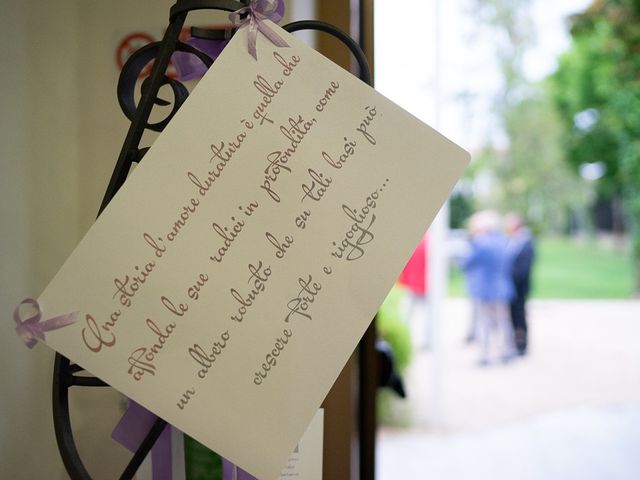 Una storia d'amore duratura è quella che
affonda le sue radici in profondità, come
un albero robusto che su tali basi può
crescere forte e rigoglioso...